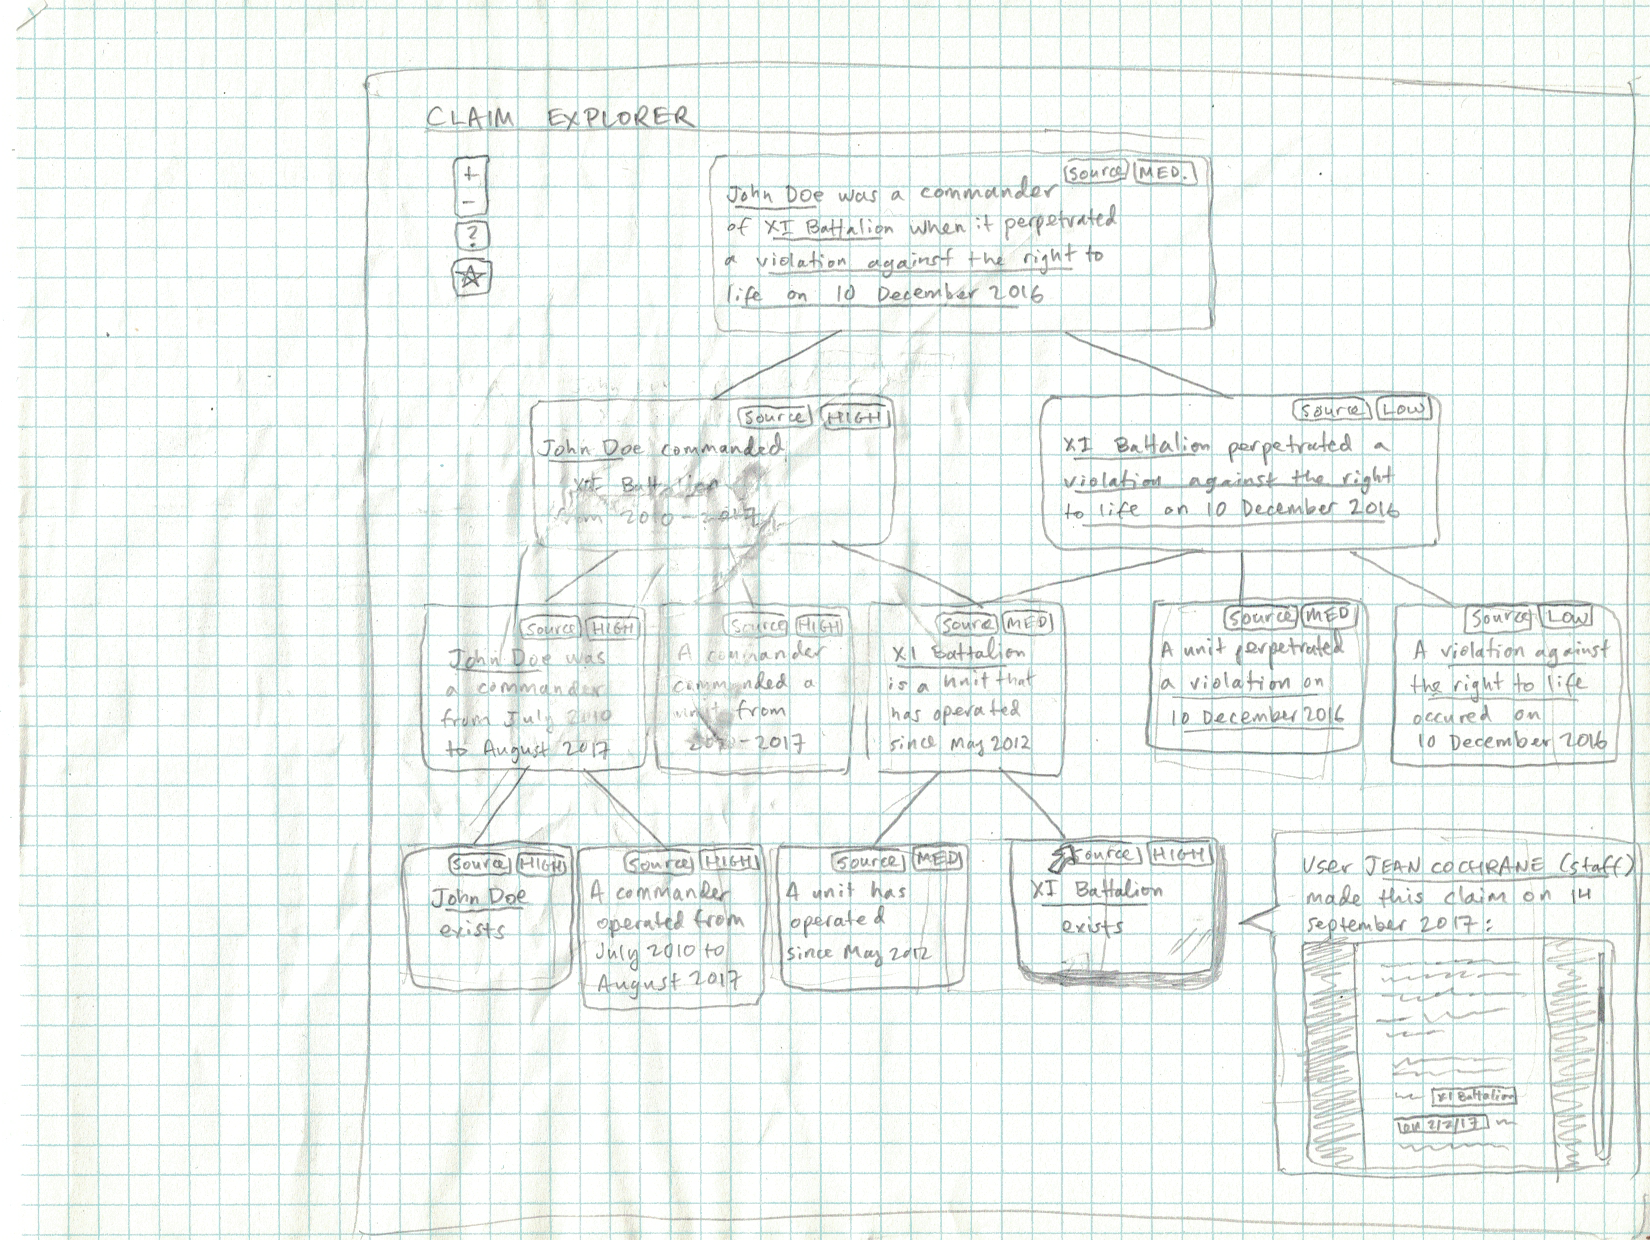 CLAIM EXPLORER
+
-
?
Source MED.
John Doe was a commander
of XI Battalion when it perpetrated
a violation against the right to
life on 10 December 2016
Source HIGH
John Doe commanded
XI Battalion
from 2010-2017
Source LOW
XI Battalion perpetrated a
violation against the right
to life on 10 December 2016
Source HIGH
John Doe was
a commander
from July 2010
to August 2017
Source HIGH
A commander
commanded a
unit from
2010-2017
Source MED
XI Battalion
is a unit that
has operated
since May 2012
Source MED
A unit perpetrated
a violation on
10 December 2016
Source LOW
A violation against
the right to life
occured on
10 December 2016
Source HIGH
John Doe
exists
Source HIGH
A commander
operated from
July 2010 to
August 2017
Source MED
A unit has
operated
since May 2012
Source HIGH
XI Battalion
exists
User JEAN COCHRANE (staff)
made this claim on 14
september 2017:
XI Battalion
on 2/2/17